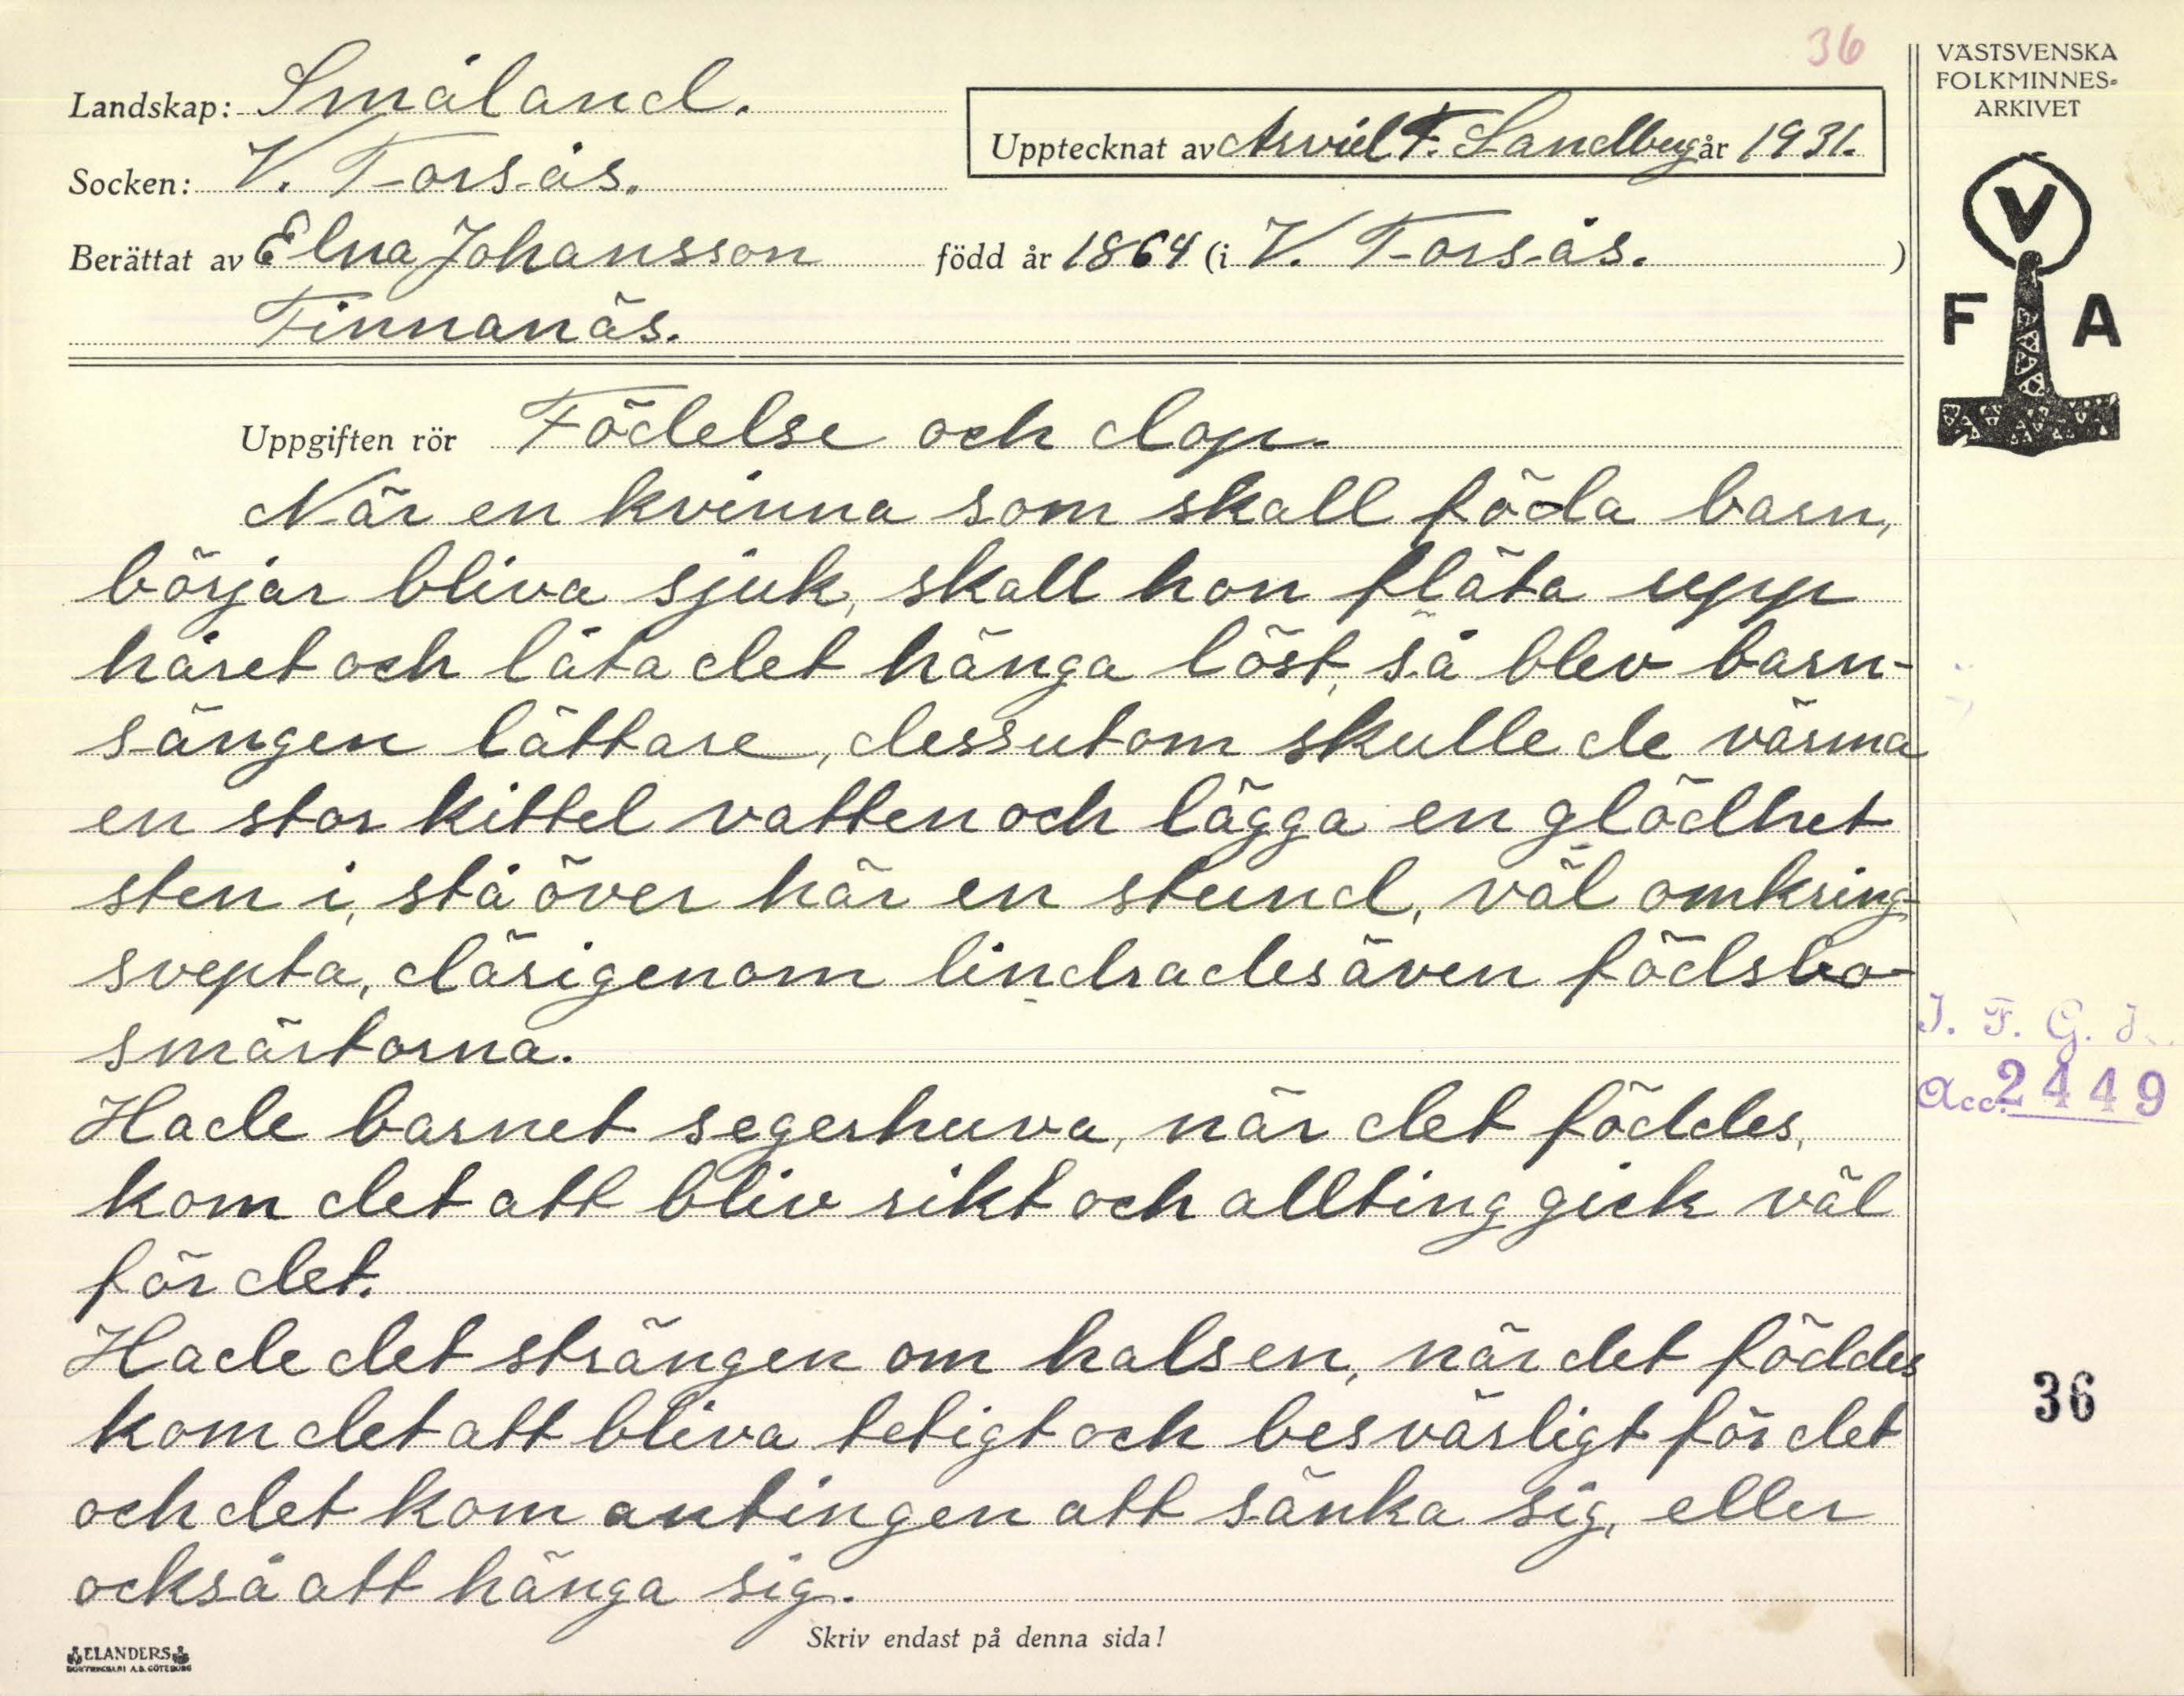 36
VÄSTSVENSKA
FOLKMINNES-
ARKIVET
Landskap: Småland.
Upptecknat av Arvid F. Sandberg år 1931.
Socken: V. Torsås.
Berättat av Elna Johansson född år 1864 (i V. Torsås. )
Finnanäs.
V
F A
Uppgiften rör Födelse och dop.
När en kvinna som skall föda barn,
börjar bliva sjuk, skall hon fläta upp
håret och låta det hänga löst, så blev barn-
sängen lättare, dessutom skulle de värma
en stor kittel vatten och lägga en glödhet
sten i, stå över här en stund, väl omkring-
svepta, därigenom lindrades även födslo-
smärtorna.
Hade barnet segerhuva, när det föddes,
kom det att bliv rikt och allting gick väl
för det.
Hade det strängen om halsen, när det föddes
kom det att bliva tetigt och besvärligt för det
och det kom antingen att sänka sig, eller
också att hänga sig.
I. F. G. F.
Acc. 2449
36
Skriv endast på denna sida!
ELANDERS
BOKTRYCKERI A.B. GÖTEBORG